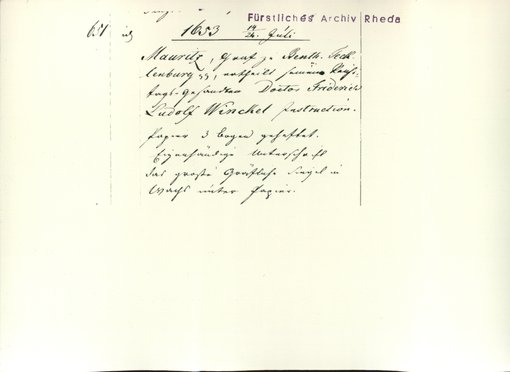 Fürstliches Archiv Rheda
651
1653 14/24. Juli
Mauritz, Graf zu Benth. Teck-
lenburg pp, ertheilt seinem Reichs-
tags-Gesandten Doctor Friderich
Ludolf Winckel Instruction.
Papier 3 bogen geheftet.
Eigenhändige Unterschrift
das große Gräfliche Siegel in
Wachs unter Papier.